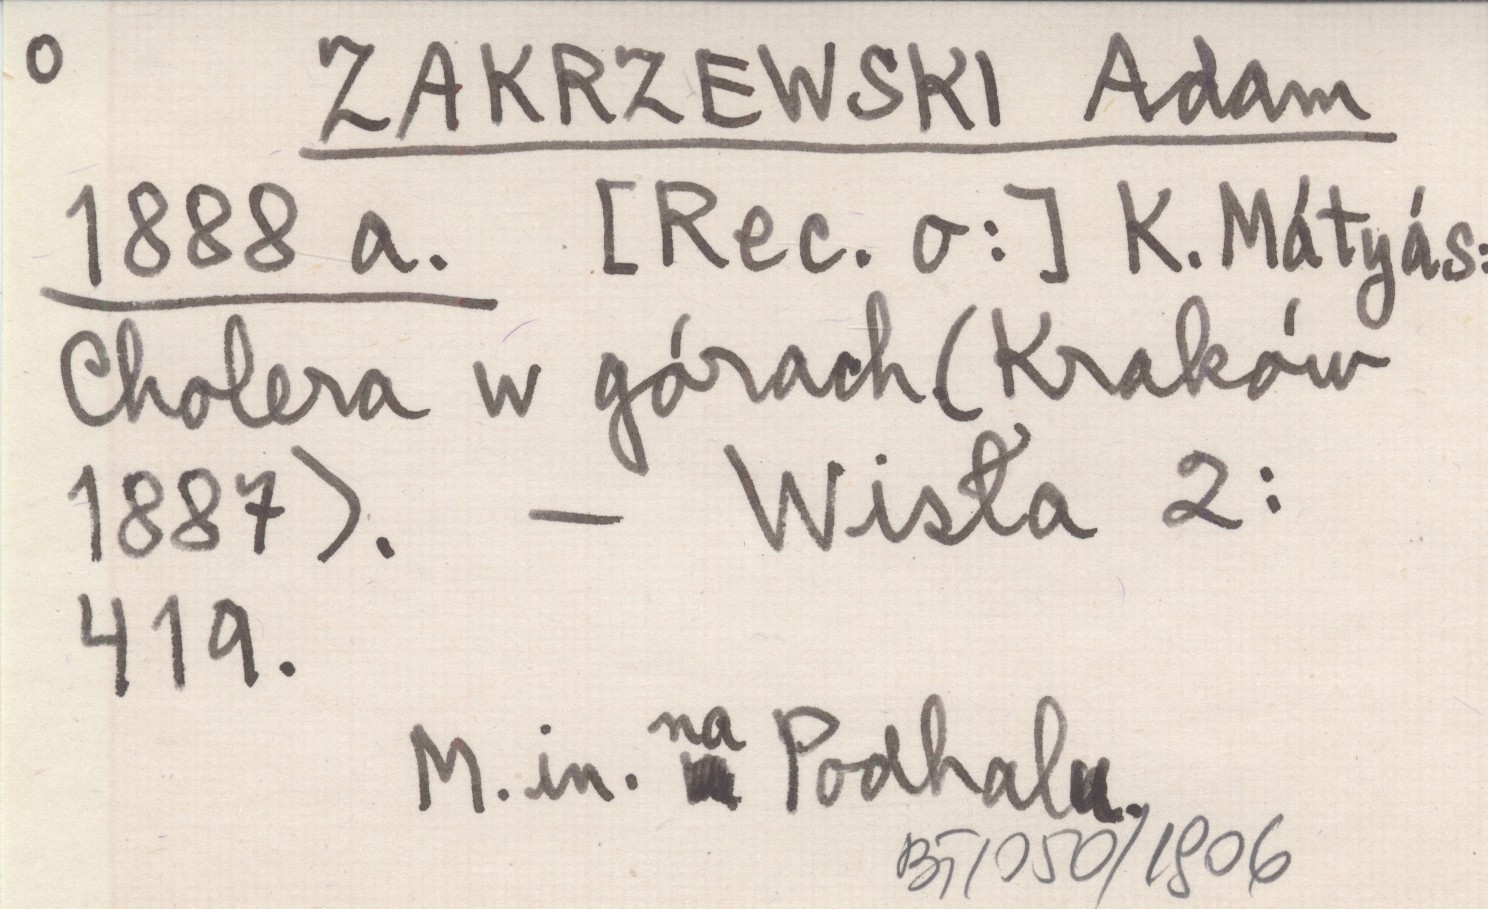 o ZAKRZEWSKI Adam
1888 a. [Rec. o:] K. Mátyás:
Cholera w górach (Kraków
1887). — Wisła 2:
419.
M. in. na Podhalu.
BT/050/1806